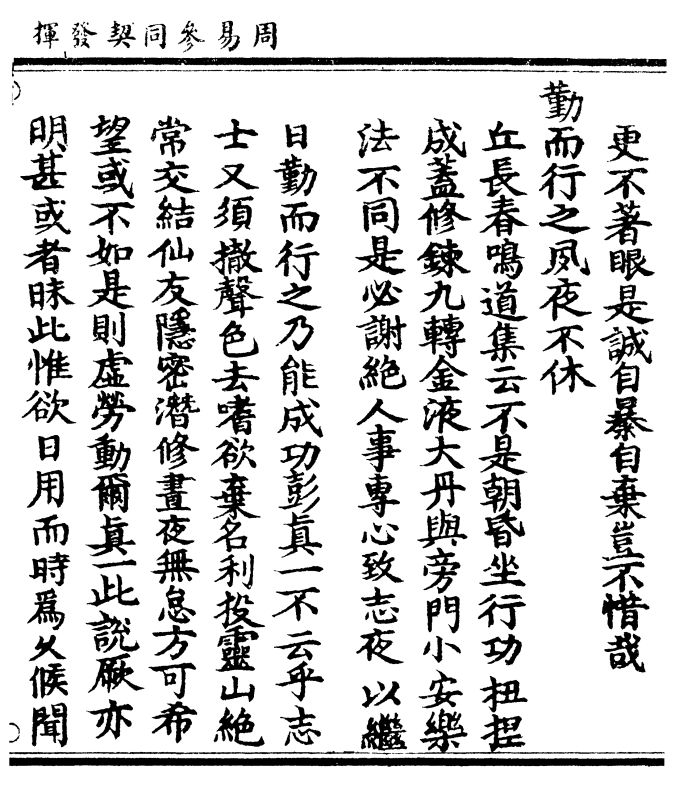 周易參同契發揮
更不著眼是誠自暴自棄豈不惜哉
勤而行之夙夜不休
丘長春鳴道集云不是朝昏坐行功扭捏
成蓋修鍊九轉金液大丹與旁門小安樂
法不同是必謝絶人事專心致志夜以繼
日勤而行之乃能成功彭真一不云乎志
士又須撤聲色去嗜欲棄名利投靈山絶
常交結仙友隱密潛修晝夜無怠方可希
望或不如是則虛勞動爾真一此說厥亦
明甚或者昧此惟欲日用而時爲久候聞